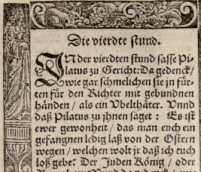 Die vierdte stund.
IN der vierdten stund sasse Pi-
latus zu Gericht: Da gedenck/
wie gar schmehlichen sie jn für-
ten für den Richter mit gebundnen
händen/ als ein Vbelthäter. Vnnd
daß Pilatus zu jhnen saget : Es ist
ewer gewonheit/ das man euch ein
gefangnen ledig laß von der Ostern
wegen/ welchen wolt jr daß ich euch
loß gebe: Der Juden König/ oder